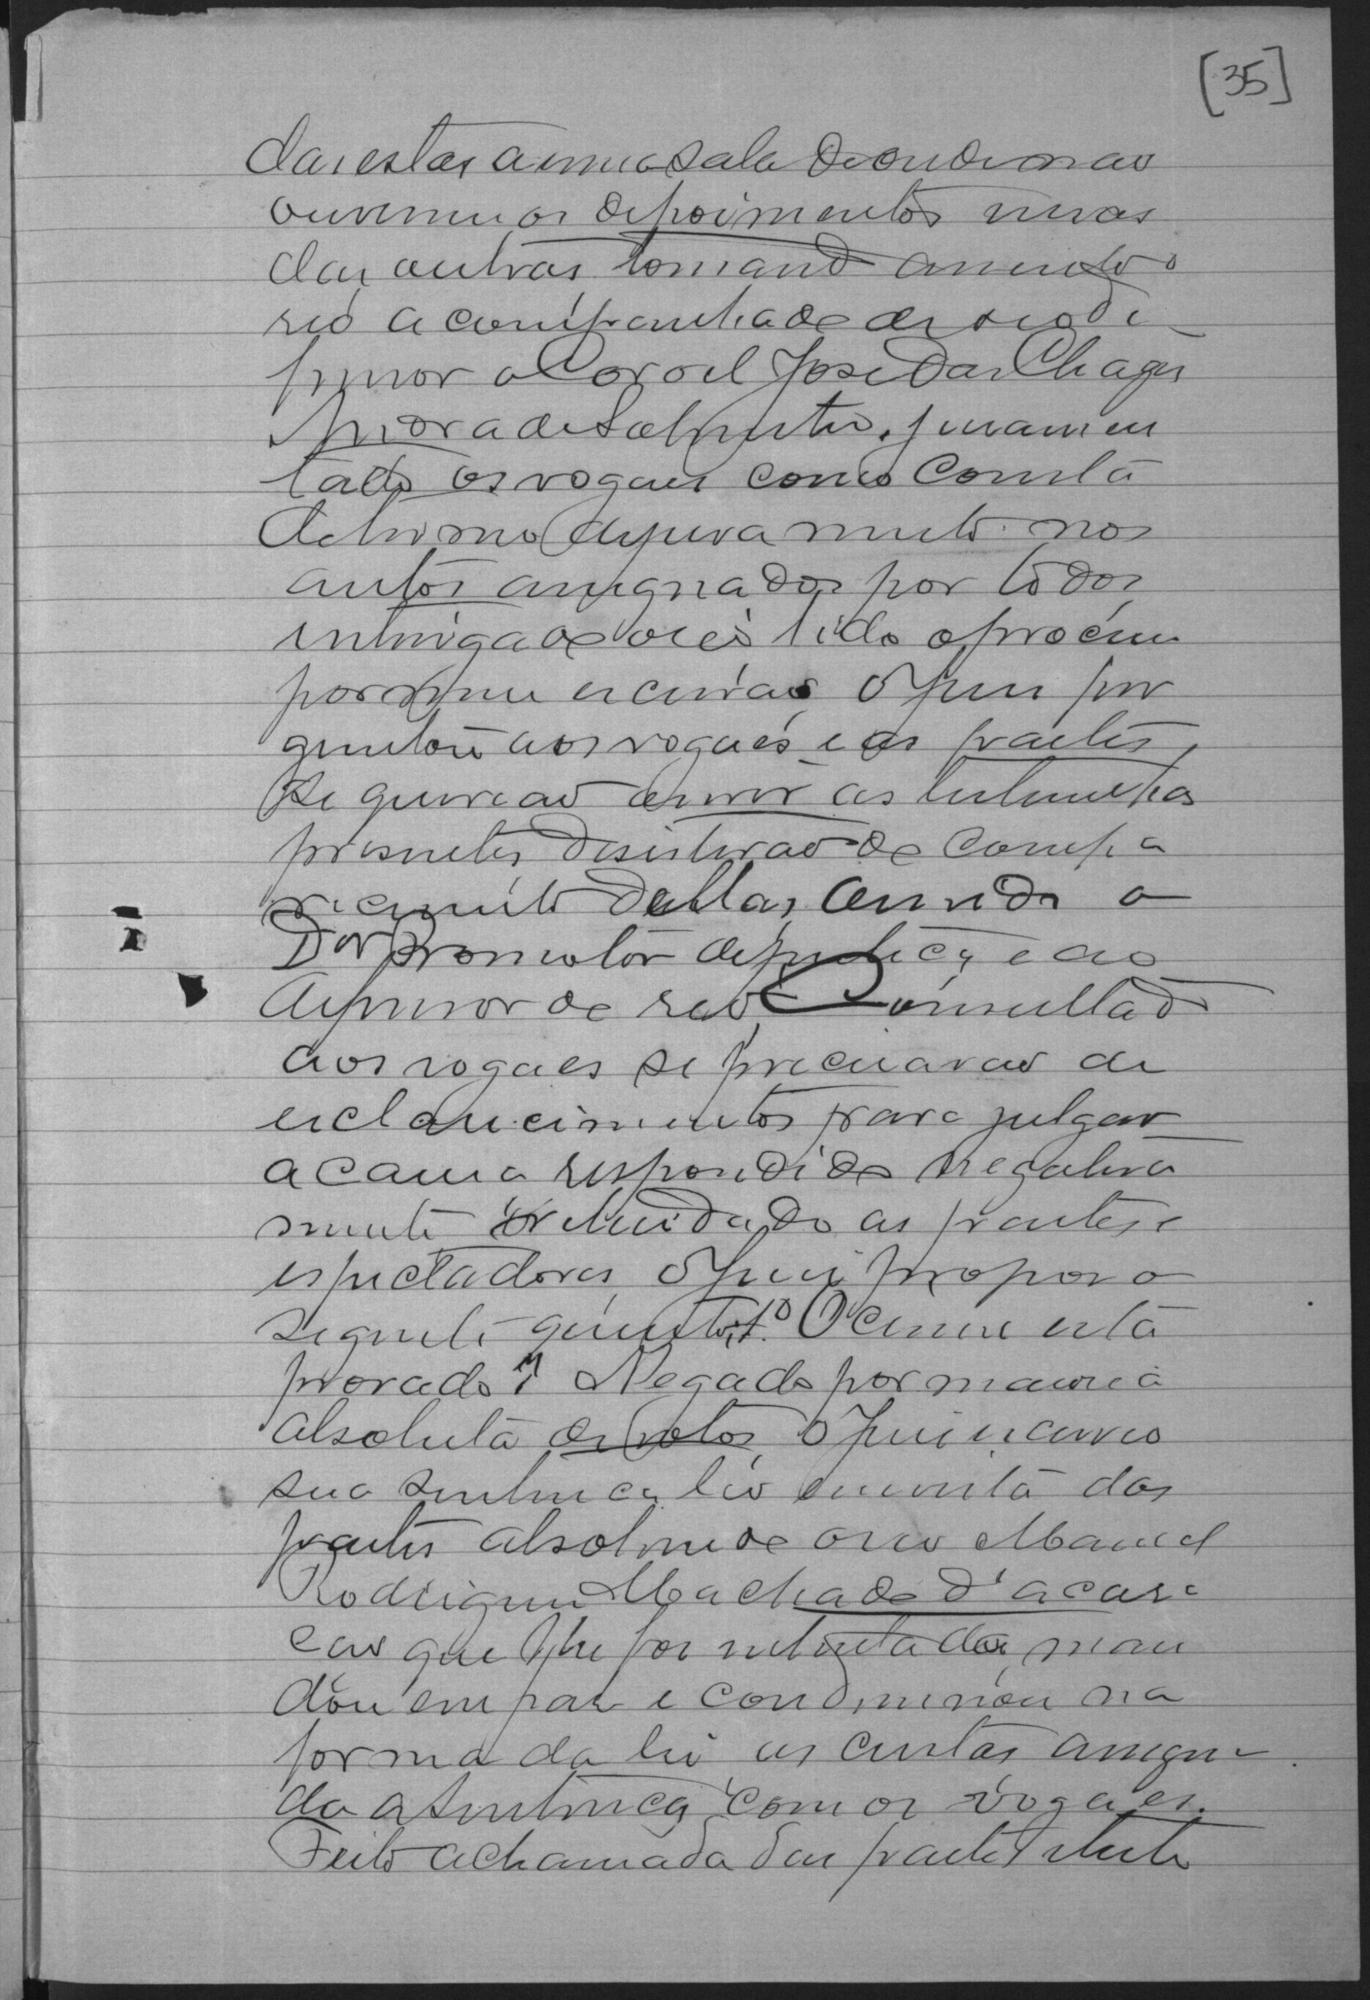 [35]
das estas a uma sala de onde nao
ouvem os depoimentos umas
das outras, tomando assento o
reo acompanhado de seo de
fensor o Coronel José das Chagas
juramen
tado os vogaes como consta
do termo de juramento nos
autos assignados por todos
interrogado o reo lido o processo
por mim escrivão, o Juiz per
guntou aos vogaes e as partes,
se queriao ouvir as testemunhas
presentes desistirao do compa
recimento dellas, ouvido o
Dor Promotor de justiça e ao
defensor do reo, Consultado
aos vogaes se precisavao de
esclarecimentos para julgar
a causa respondido negativa
mente as partes e
espectadores, o Juiz propos o
seguinte quesito: 1º O crime está
provado? Negado por maioria
absoluta de votos, o Juiz
sua sentença leo em vista das
partes absolvendo o reo Manoel
Rodrigues Machado d'acusa
ção que lhe foi intentada, man
dou em paz e condemnou na
forma da lei as custas, assigna
da a sentença com os vogaes.
Feito a chamada das partes e teste